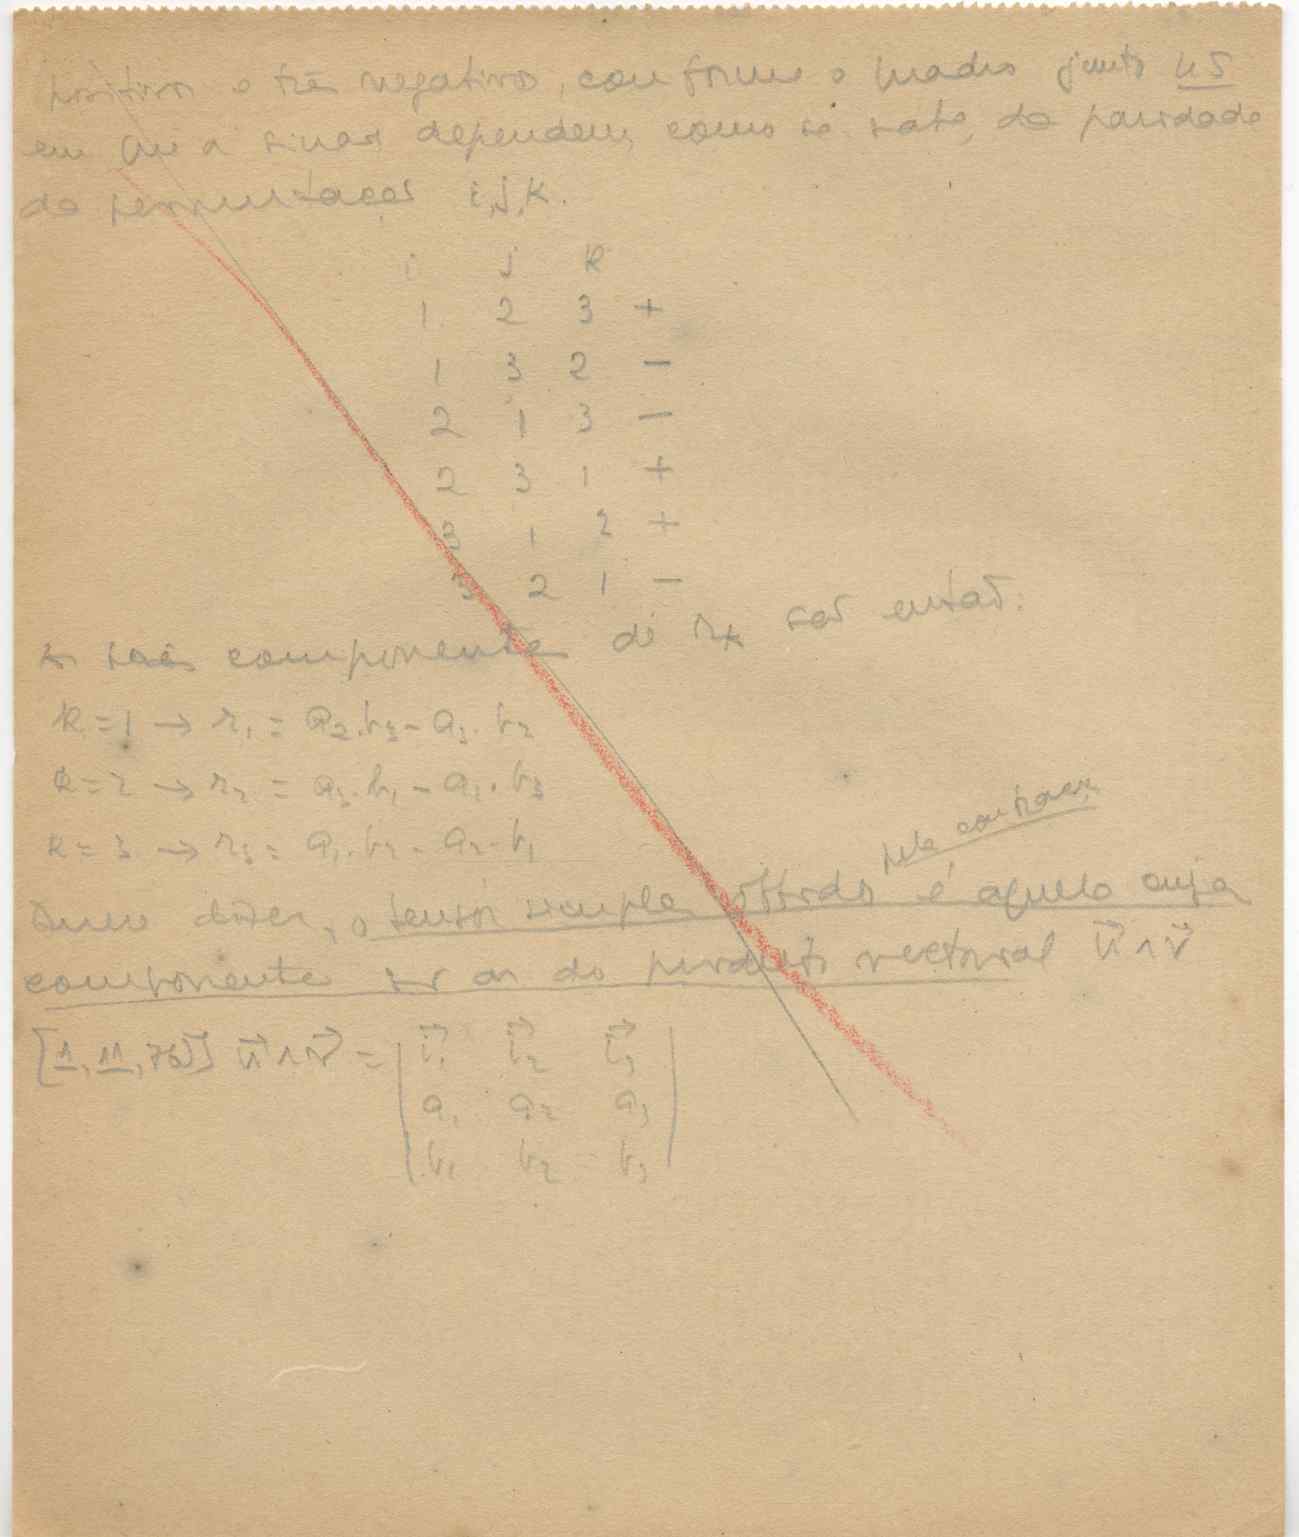 positivos e três negativos, conforme o quadro junto 45
em que os sinais dependem, como se sabe, da paridade
da permutação i,j,k.
i j k
1 2 3 +
1 3 2 -
2 1 3 -
2 3 1 +
3 1 2 +
3 2 1 -
As três componentes de r_k são então:
k=1 → r₁ = a₂.b₃ - a₃.b₂
k=2 → r₂ = a₃.b₁ - a₁.b₃
k=3 → r₃ = a₁.b₂ - a₂.b₁
pela contracção
dizer, o tensor simples obtido é aquele cujas
componentes são as do producto vectorial u⃗ ∧ v⃗
[1, 11, 76] u⃗ ∧ v⃗ = | i⃗₁ i⃗₂ i⃗₃ |
| a₁ a₂ a₃ |
| b₁ b₂ b₃ |